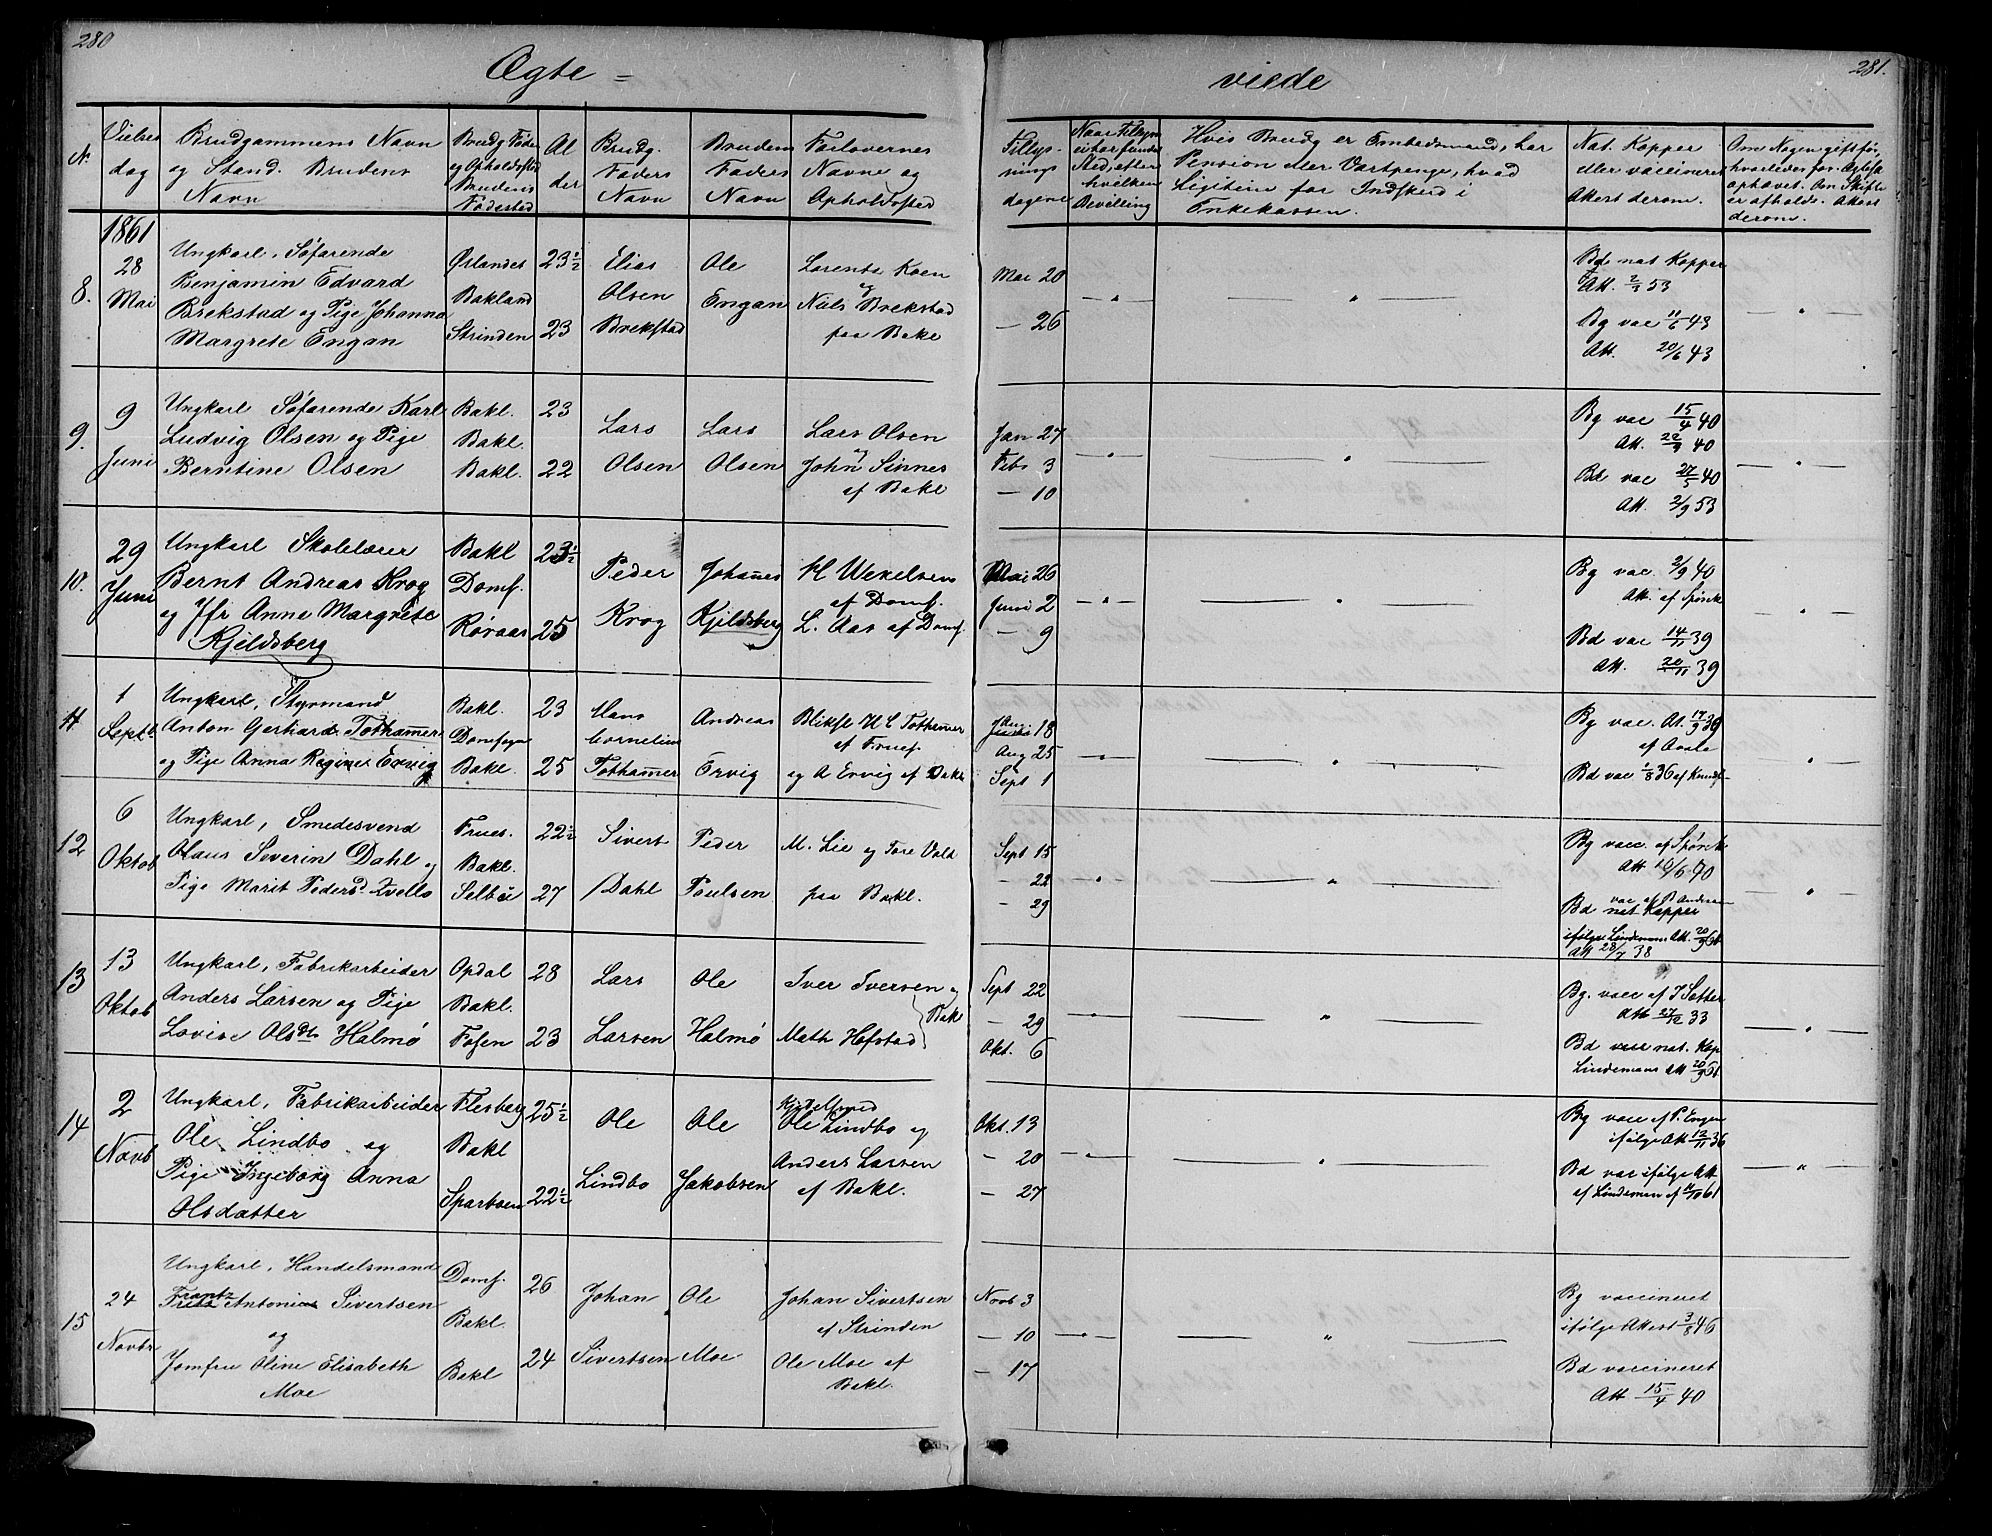 280
281.
Ægte =
viede
N.
Vielses
dag
Brudgommens Navn
og Stand. Brudens
Navn
Brudg Føde
og Opholdssted
Brudens
Fødested
Al
der
Brudg.
Faders
Navn
Brudens
Faders
Navn
Forlovernes
Navne og
Opholdssted
Tillys-
nings
dagene
Hvis Brudg er Embedsmand, har
Pension eller Vartpenge, hvad
Legitim for Indskud i
Enkekassen.
Nat. Kopper
eller vaccineret
Attest derom.
1861
8.
28
Mai
Ungkarl. Søfarende
Benjamin Edvard
Brekstad og Pige Johanna
Margrete Engan
Ørlandet
Bakland
Strinden
23½
23
Elias
Olsen
Brekstad
Ole
Engan
Lorents Koen
og
Niels Brekstad
paa Bakl
Mai 20
— 26
Bd nat Kopper
Att. 2/9 53
Bg vac 11/6 43
Att. 20/6 43
9.
9
Juni
Ungkarl Søfarende Karl
Ludvig Olsen og Pige
Berntine Olsen
Bakl.
Bakl.
Bakl.
23
22
Lars
Olsen
Lars
Olsen
Lars Olsen
og
John Sinnes
af Bakl
Jan 27
Feb 3
— 10
Bg vac 15/4 40
Att. 22/9 40
Bd vac 27/5 40
Att. 2/9 53
10.
29
Juni
Ungkarl Skolelærer
Bernt Andreas Krog
og Jfr Anne Margrete
Kjeldsberg
Bakl
Domf.
Røraas
23½
25
Peder
Krog
Johannes
Kjeldsberg
H Wexelsen
af Domf.
L. Aas af Domf.
Mai 26
Juni 2
— 9
Bg vac. 2/9 40
Att. af Spørck
Bd vac 14/11 39
Att. 20/11 39
11.
1
Septb
Ungkarl, Styrmand
Anton Gerhard Tothammer
og Pige Anna Regine Ervig
Bakl.
Domsogn
Bakl.
23
25
Hans
Cornelius
Tothammer
Andreas
Ervig
Bliksl H C Tothammer
af Fruef.
og A Ervig af Bakl
Aug 18
Aug 25
Sept 1
Bg vac. At. 17/9 39
af Aasle
Bd vac 1/8 36 af Knudf
12
6
Oktob
Ungkarl, Smedesvend
Olaus Severin Dahl og
Pige Marit Pedersd Kvello
Frues.
Bakl.
Selbue
22½
27
Sivert
Dahl
Peder
Poulsen
M. Lie og Tore Vold
paa Bakl.
Sept 15
— 22
— 29
Bg vacc. af Spørck
Att 10/6 40
Bd nat Kopper
13
13
Oktob
Ungkarl, Fabrikarbeider
Anders Larsen og Pige
Lovise Olsdtr Halmø
Opdal
Bakl.
Fosen
28
23
Lars
Larsen
Ole
Halmø
Iver Iversen og
Math Hofstad
Bakl
Sept 22
— 29
Okt. 6
Bg. vacc af J Satter
Att 27/12 33
Bd nat. Kop
Lindemans Att 20/9 61
14
2
Novb
Ungkarl, Fabrikarbeider
Ole Lindbo og
Pige Ingeborg Anna
Olsdatter
Flesberg
Bakl
Sparboen
25½
22½
Ole
Lindbo
Ole
Jakobsen
Ole Lindbo og
Anders Larsen
af Bakl.
Okt. 13
— 20
— 27
Bg vacc af P. Engen
ifølge Att 12/11 36
Bd vac ifølge Att
af Lindeman af 11/10 61
15
24
Novbr
Ungkarl, Handelsmand
Frantz
Antonius Sivertsen
og
Jomfru Oline Elisabeth
Moe
Domf.
Bakl.
Bakl
26
24
Johan
Sivertsen
Ole
Moe
Johan Sivertsen
af Strinden
Ole Moe af
Bakl.
Novb 3
— 10
— 17
Bg vaccineret
ifølge Attest 3/8 46
Bd vaccineret
Att 15/4 40